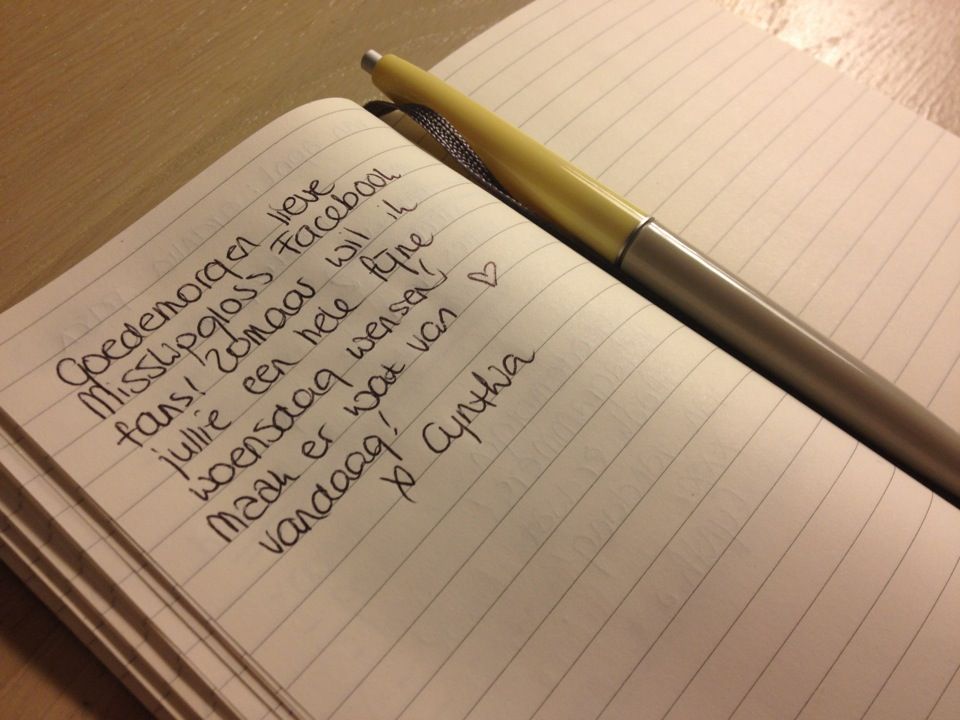 Goedemorgen lieve
Misslipgloss Facebook
fans! Zomaar wil ik
jullie een hele fijne
woensdag wensen!
Maak er wat van ♡
vandaag!
x Cynthia